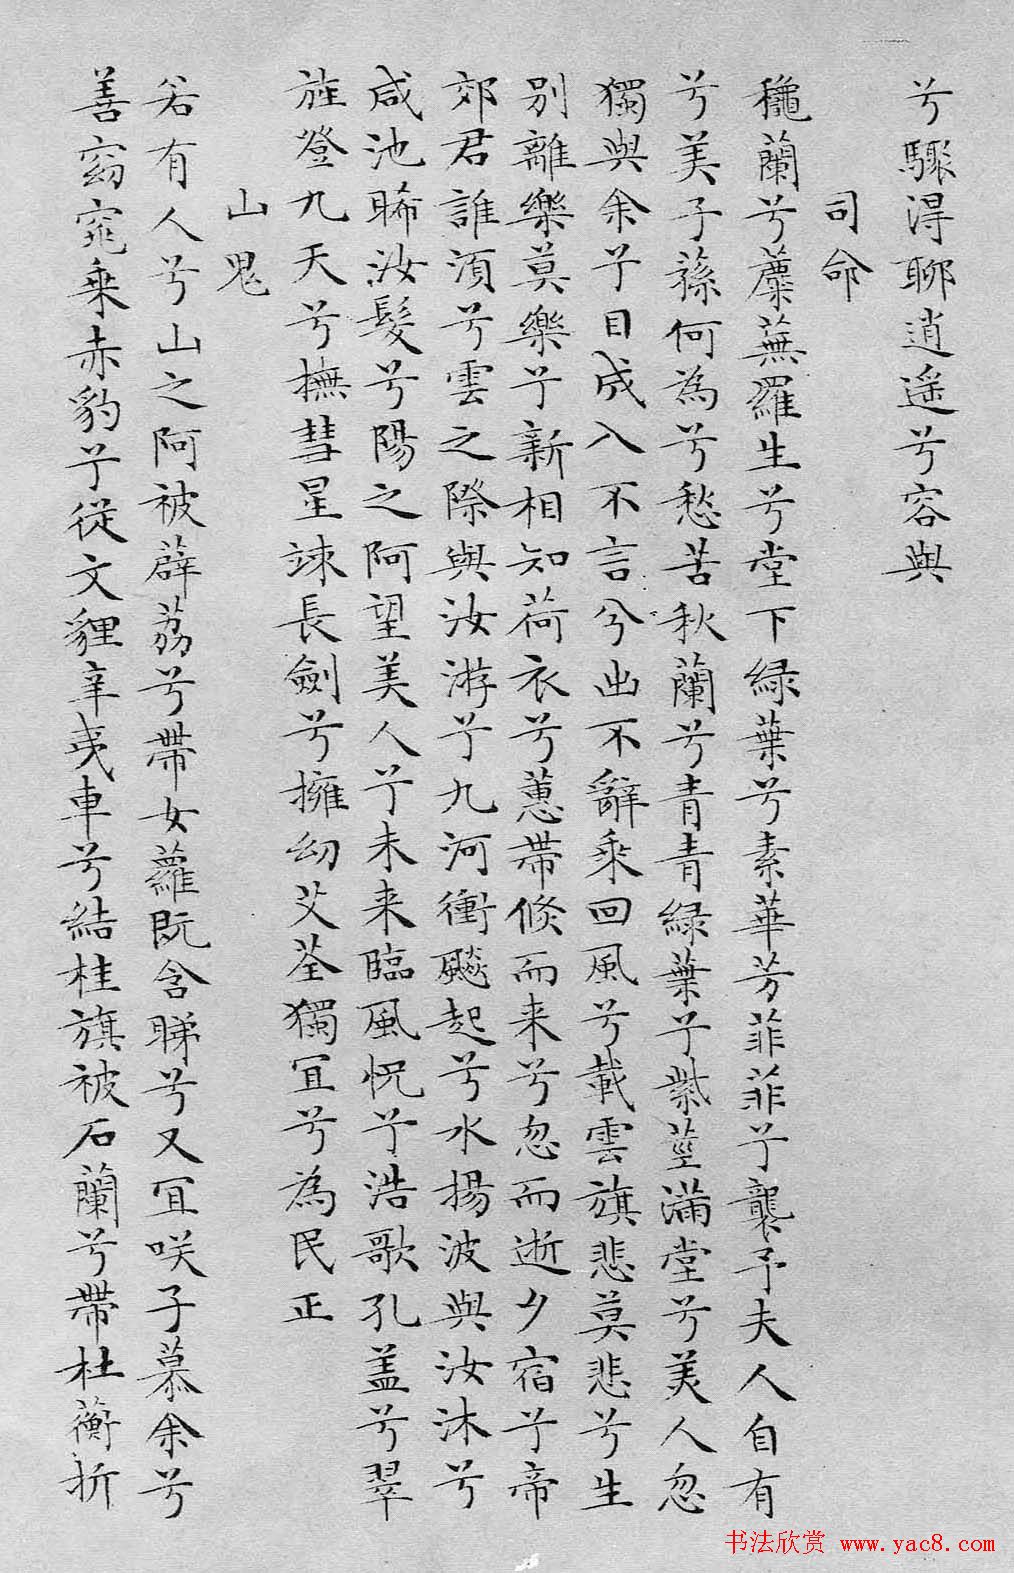 兮驟得聊逍遥兮容與
司命
穐蘭兮蘪蕪羅生兮堂下緑葉兮素華芳菲菲兮襲予夫人自有
兮美子蓀何為兮愁苦秋蘭兮青青緑葉兮紫莖滿堂兮美人忽
獨與余兮目成入不言兮出不辭乘回風兮載雲旗悲莫悲兮生
别離樂莫樂兮新相知荷衣兮蕙帶倏而来兮忽而逝夕宿兮帝
郊君誰須兮雲之際與汝游兮九河衝飈起兮水揚波與汝沐兮
咸池晞汝髮兮陽之阿望美人兮未来臨風怳兮浩歌孔盖兮翠
旌登九天兮撫彗星竦長劍兮擁幼艾荃獨冝兮為民正
山鬼
若有人兮山之阿被薜荔兮帶女蘿既含睇兮又冝咲子慕余兮
善窈窕乗赤豹兮從文貍辛夷車兮結桂旗被石蘭兮帶杜蘅折
书法欣赏 www.yac8.com